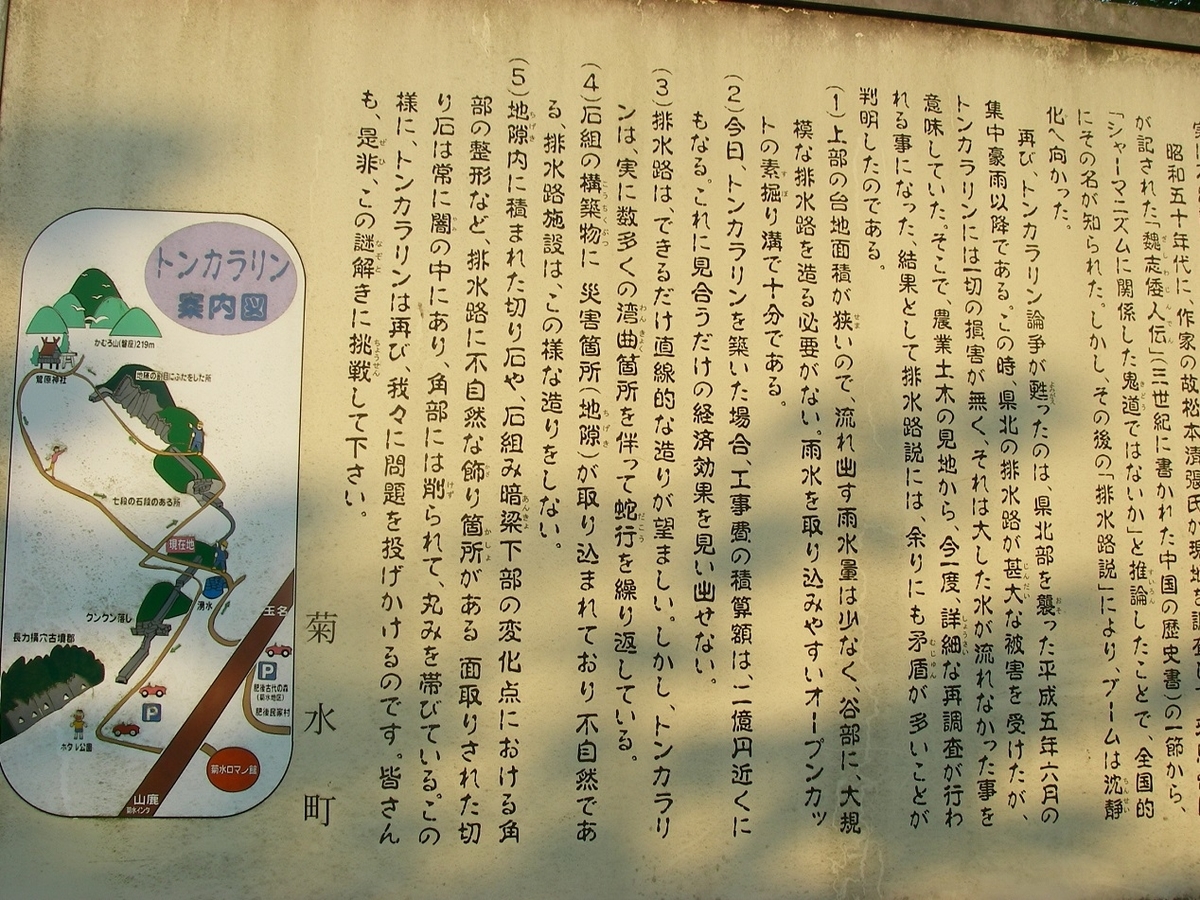 昭和五十年代に、作家の故松本清張氏が現地を調査し、
が記された「魏志倭人伝」(三世紀に書かれた中国の歴史書)の一節から、
「シャーマニズムに関係した鬼道ではないか」と推論したことで、全国的
にその名が知られた。しかし、その後の「排水路説」により、ブームは沈静
化へ向かった。
再び、トンカラリン論争が甦ったのは、県北部を襲った平成五年六月の
集中豪雨以降である。この時、県北の排水路が甚大な被害を受けたが、
トンカラリンには一切の損害が無く、それは大した水が流れなかった事を
意味していた。そこで、農業土木の見地から、今一度、詳細な再調査が行わ
れる事になった、結果として排水路説には、余りにも矛盾が多いことが
判明したのである。
(1)上部の台地面積が狭いので、流れ出す雨水量は少なく、谷部に、大規
模な排水路を造る必要がない。雨水を取り込みやすいオープンカッ
トの素掘り溝で十分である。
(2)今日、トンカラリンを築いた場合、工事費の積算額は、二億円近くに
もなる。これに見合うだけの経済効果を見い出せない。
(3)排水路は、できるだけ直線的な造りが望ましい。しかし、トンカラリ
ンは、実に数多くの湾曲箇所を伴って蛇行を繰り返している。
(4)石組の構築物に災害箇所(地隙)が取り込まれており不自然であ
る、排水路施設は、この様な造りをしない。
(5)地隙内に積まれた切り石や、石組み暗梁下部の変化点における角
部の整形など、排水路に不自然な飾り箇所がある 面取りされた切
り石は常に闇の中にあり、角部には削られて、丸みを帯びている。この
様に、トンカラリンは再び我々に問題を投げかけるのです。皆さん
も、是非、この謎解きに挑戦して下さい。
菊水町
トンカラリン
案内図
かむろ山(磐座)219m
菅原神社
地隙の割目にふたをした所
七段の石段のある所
現在地
湧水
クンクン落し
長力横穴古墳郡
玉名
P
肥後古代の森
(菊水地区)
肥後民家村
P
ホタル公園
菊水ロマン館
山鹿
菊水インタ